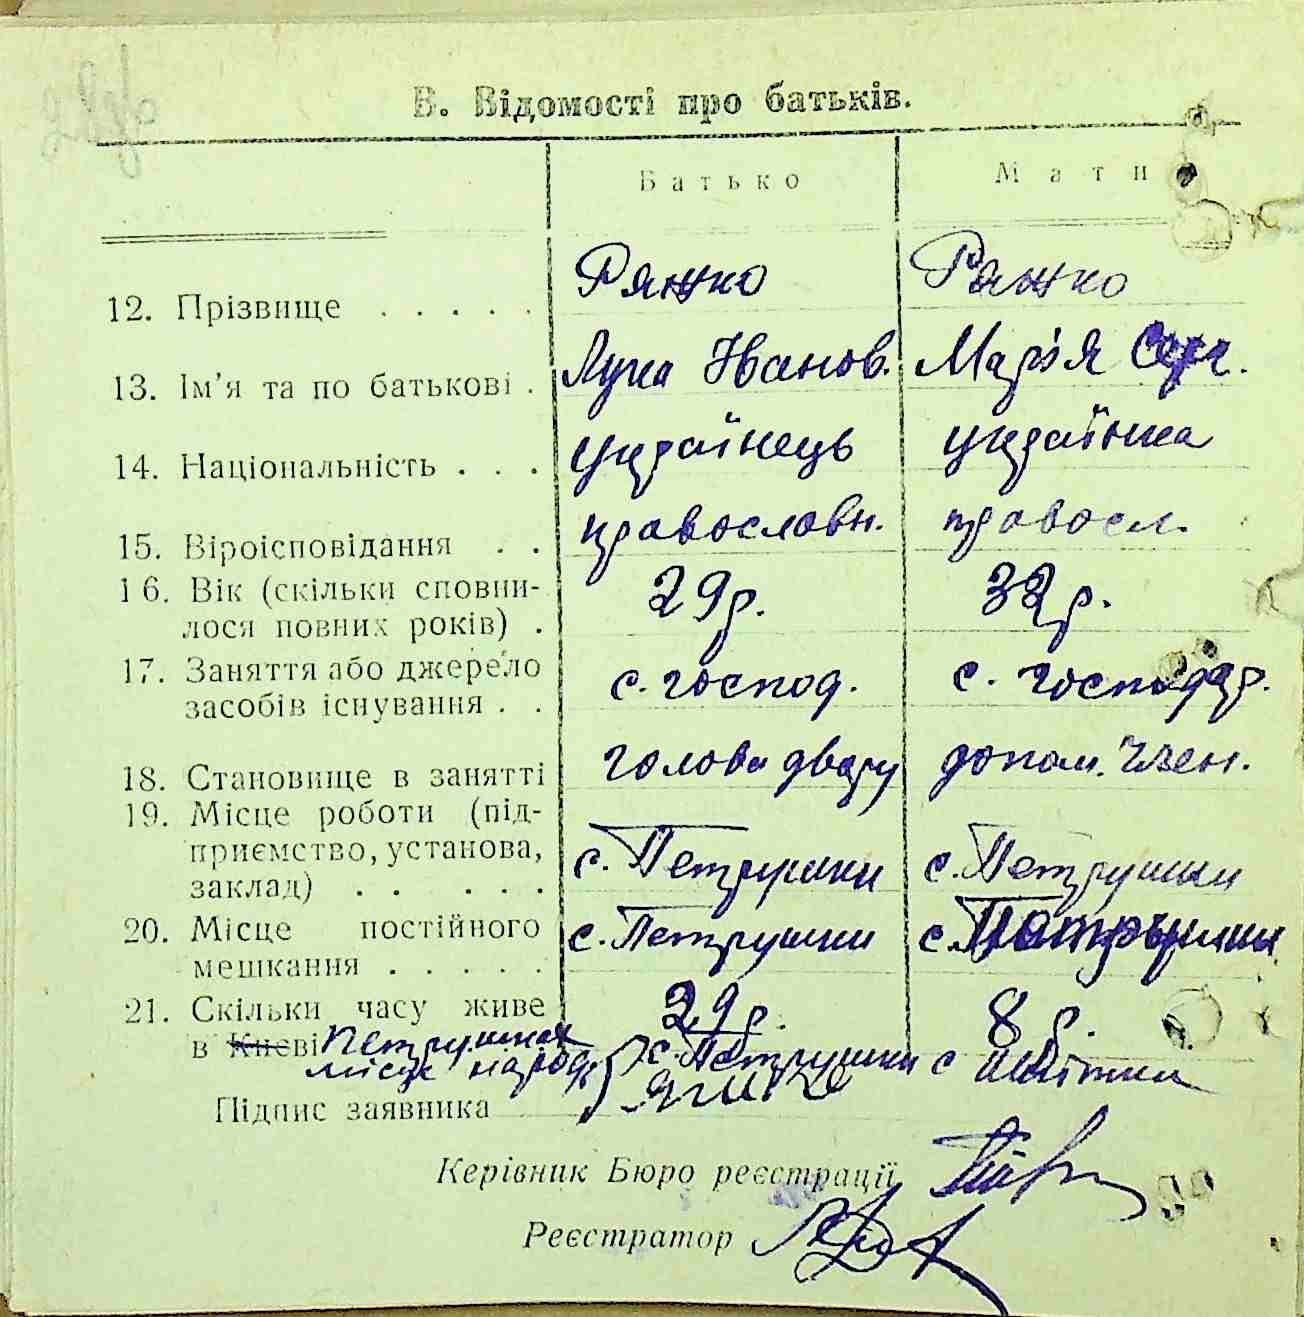 В. Відомості про батьків.
Батько Мати
12. Прізвище . . . . . Ряжко Ряжко
13. Ім'я та по батькові . Лука Іванов. Марія
14. Національність . . . українець українка
15. Віроісповідання . . православн. правосл.
16. Вік (скільки сповни-
лося повних років) . 29 р. 32 р.
17. Заняття або джерело
засобів існування . . с. господ. с. господар.
18. Становище в занятті голова двору допом. член.
19. Місце роботи (під-
приємство, установа,
заклад) . . . . . с. Петрушки с. Петрушки
20. Місце постійного
мешкання . . . . . с. Петрушки с. Петрушки
21. Скільки часу живе
в Києві Петрушках 29 р. 8 р.
місце народ. с. Петрушки с
Підпис заявника
Керівник Бюро реєстрації
Реєстратор